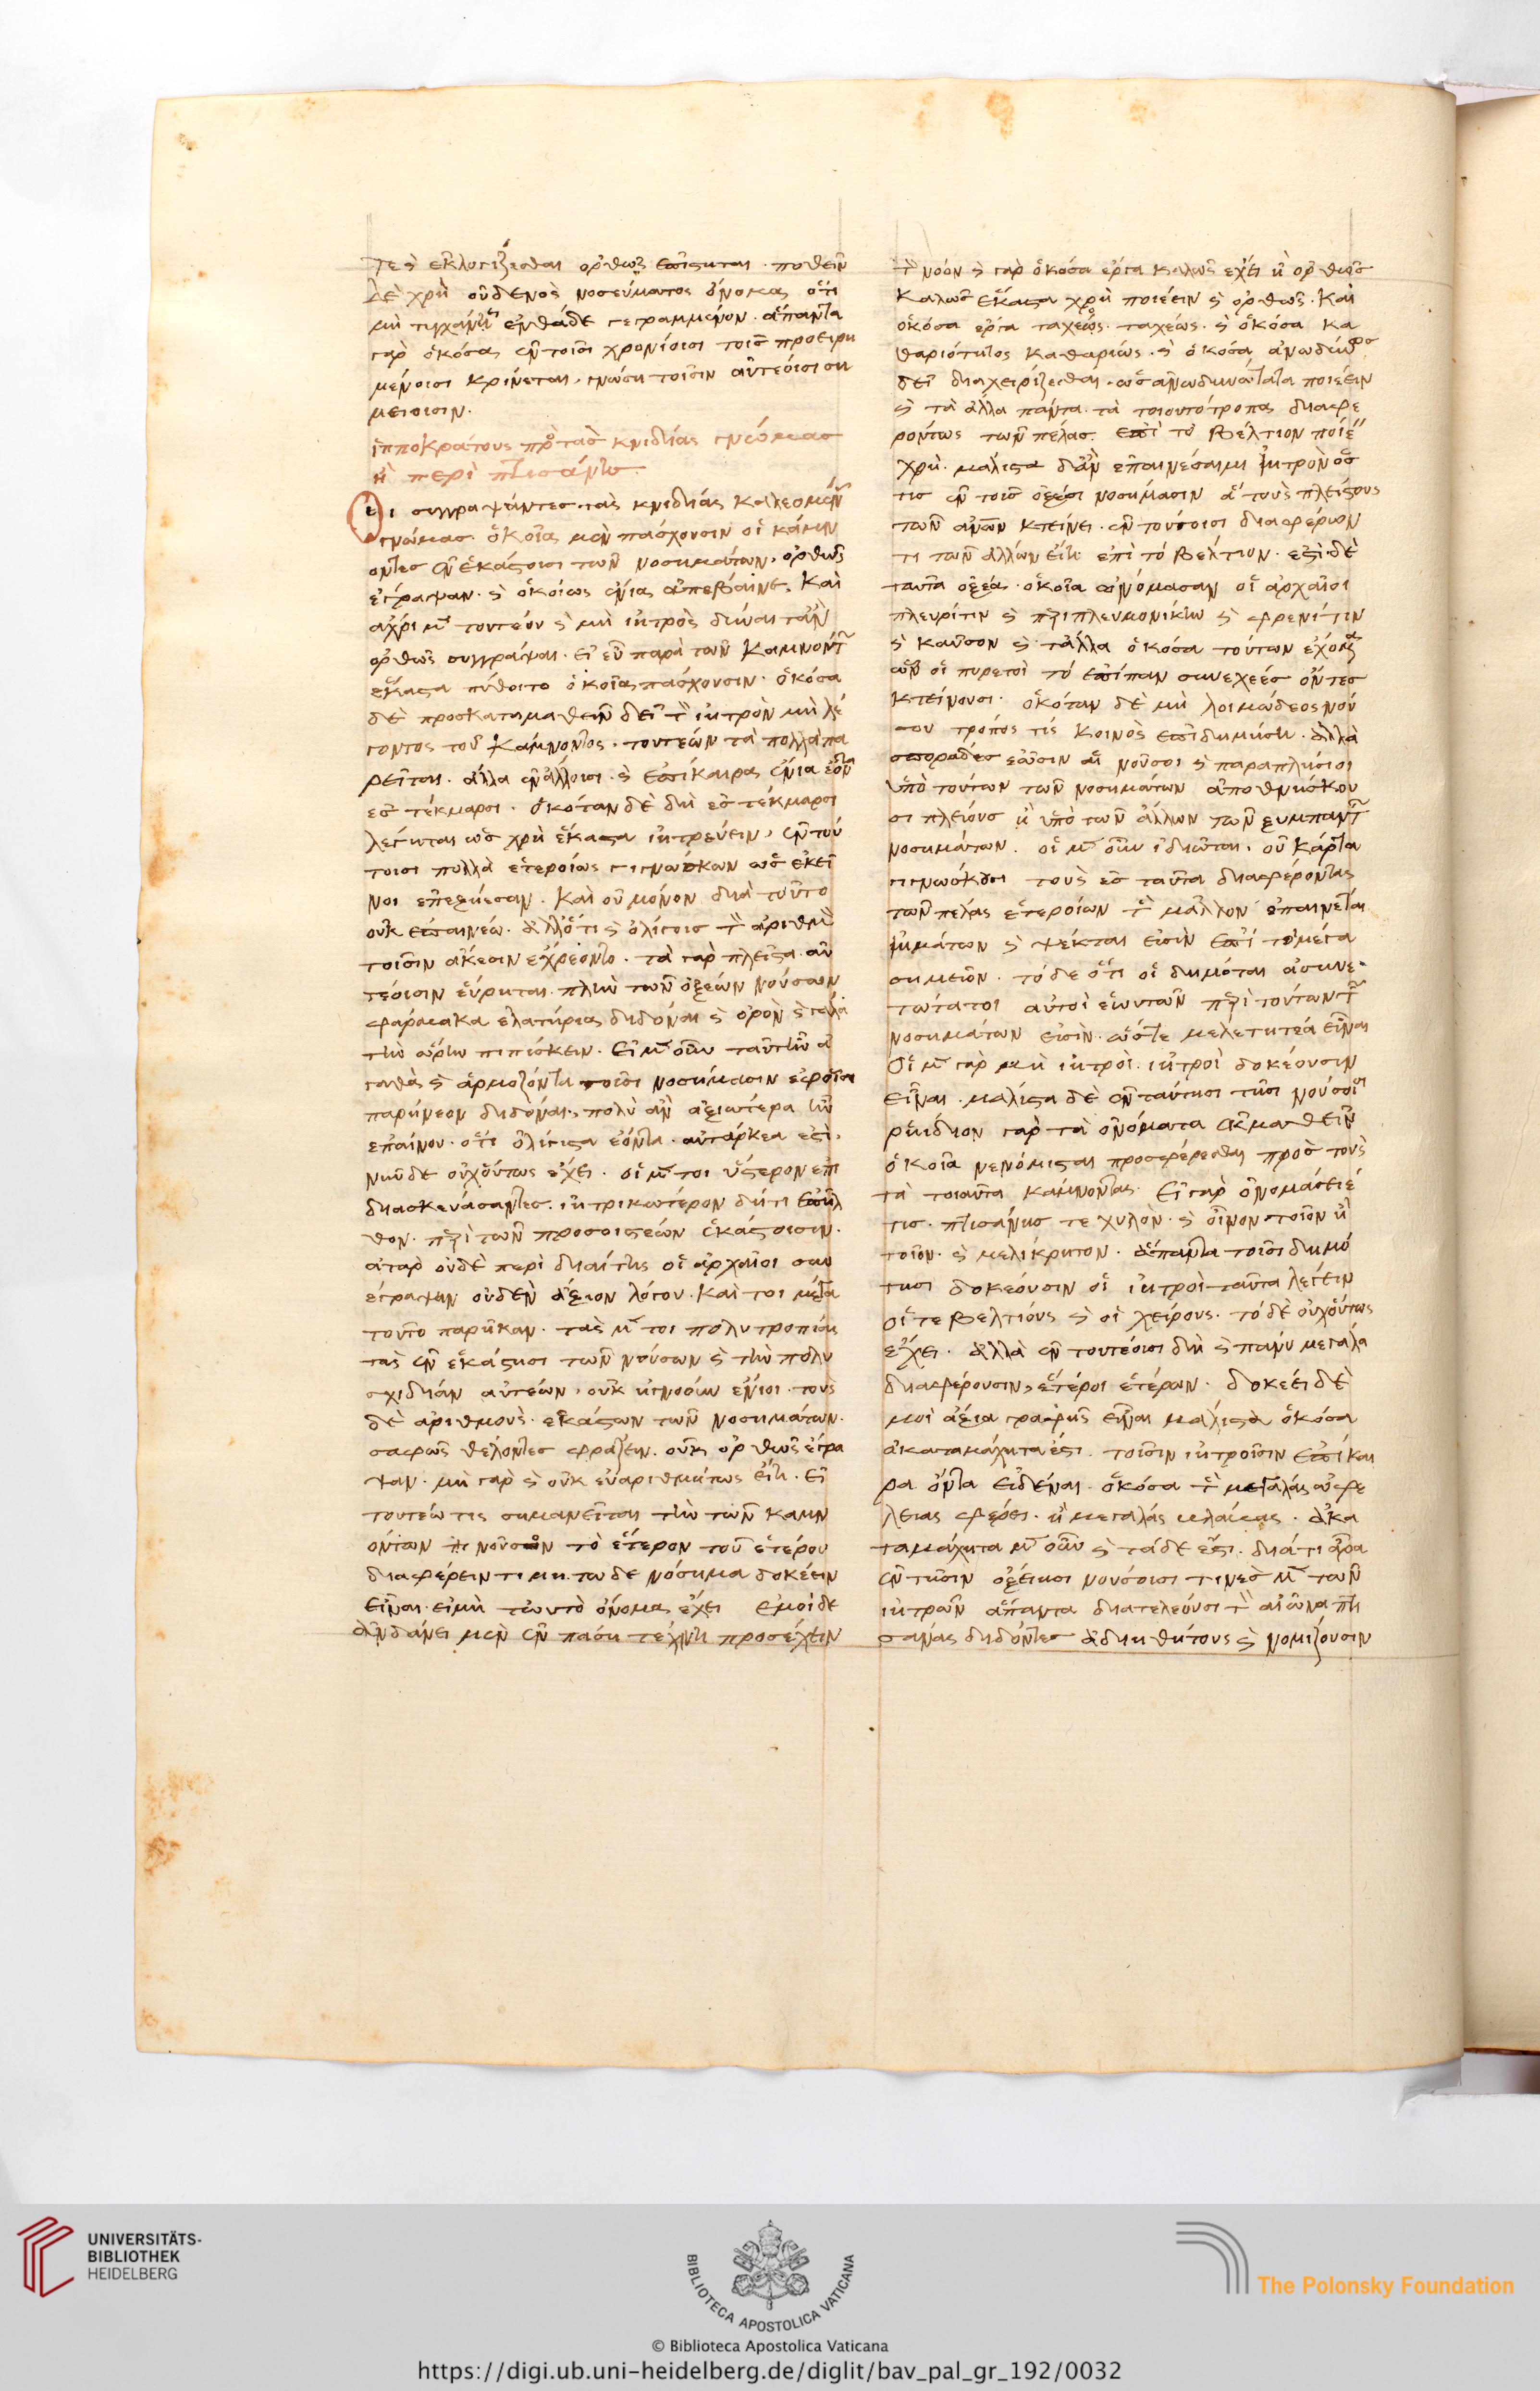 τε καὶ ἐκλογίζεσθαι ὀρθῶς ἐπίσηται. ποθεῖν
δὲ χρὴ οὐδενὸς νοσεύματος ὄνομα, ὅτι
μὴ τυγχάνῃ ἐνθάδε γεγραμμένον. ἅπαντα
γὰρ ὁκόσα ἐν τοῖσι χρονίοισι τοῖς προειρη
μένοισι κρίνεται, γνώσῃ τοῖσιν αὐτέοισι ση
μείοισιν.
ἱπποκράτους πρὸς τὰς κνιδίας γνώμας
ἢ περὶ πτισάνης
οι συγγράψαντες τὰς κνιδίας καλεομένας
γνώμας ὁκοῖα μὲν πάσχουσιν οἱ κάμν
οντες ἐν ἑκάστοισι τῶν νοσημάτων, ὀρθῶς
ἔγραψαν. καὶ ὁκοίως ἔνια ἀπέβαινε, καὶ
ἄχρι μὲν τουτέων καὶ μὴ ἰητρὸς δύναιτ' ἂν
ὀρθῶς συγγράψαι. εἰ εὖ παρὰ τῶν καμνόντων
ἕκαστα πύθοιτο ὁκοῖα πάσχουσιν. ὁκόσα
δὲ προσκαταμαθεῖν δεῖ τὸν ἰητρὸν μὴ λέ
γοντος τοῦ κάμνοντος. τουτέων τὰ πολλὰ πα
ρεῖται. ἄλλα ἐν ἄλλοισι. καὶ ἐπίκαιρα ἔνια ἐόντα
ἐς τέκμαρσι. ὁκόταν δὲ δὴ ἐς τέκμαρσι
λέγηται ὡς χρὴ ἕκαστα ἰητρεύειν, ἐν του
τοισι πολλὰ ἑτεροίως γινώσκων ὡς ἐκεῖ
νοι ἐπεξῄεσαν. καὶ οὐ μόνον διὰ τοῦτο
οὐκ ἐπαινέω. ἀλλ' ὅτι καὶ ὀλίγοις τὸν ἀριθμὸν
τοῖσιν ἄκεσιν ἐχρέοντο. τὰ γὰρ πλεῖστα αὐ
τέοισιν εὕρηται πλὴν τῶν ὀξεῶν νούσων
φάρμακα ἐλατήρια διδόναι καὶ ὀρὸν καὶ γάλα
τὴν ὥρην πιπίσκειν. εἰ μὲν οὖν ταῦτα ἦν ἀ
γαθὰ καὶ ἁρμόζοντα τοῖσι νοσήμασιν ἐφ' οἷσι
παρῄνεον διδόναι, πολὺ ἂν ἀξιώτερα ἦν
ἐπαίνου. ὅτι ὀλίγιστα ἐόντα αὐτάρκεα ἐστὶ.
νῦν δὲ οὐχ οὕτως ἔχει. οἱ μέντοι ὕστερον ἐπι
διασκευάσαντες. ἰητρικωτέρον δή τι ἐπῆλ
θον. περὶ τῶν προσοιστέων ἑκάστοισιν.
ἀτὰρ οὐδὲ περὶ διαίτης οἱ ἀρχαῖοι συν
έγραψαν οὐδὲν ἄξιον λόγου. καὶ τοι μέγα
τοῦτο παρῆκαν. τὰς μέντοι πολυτροπίας
τὰς ἐν ἑκάστῃσι τῶν νούσων καὶ τὴν πολυ
σχιδίην αὐτέων, οὐκ ἠγνόουν ἔνιοι. τοὺς
δὲ ἀριθμοὺς ἑκάστων τῶν νοσημάτων.
σαφῶς θέλοντες φράζειν. οὐκ ὀρθῶς ἔγρα
ψαν. μὴ γὰρ καὶ οὐκ εὐαρίθμητος εἴη. εἰ
τουτέω τις σημανεῖται τὴν τῶν καμν
όντων νοῦσον τὸ ἕτερον τοῦ ἑτέρου
διαφέρειν τι μὴ τωδε νόσημα δοκέειν
εἶναι. εἰ μὴ τωυτὸ ὄνομα ἔχει ἐμοὶ δὲ
ἁνδάνει μὲν ἐν πάσῃ τέχνῃ προσέχειν
τὸν νόον καὶ γὰρ ὁκόσα ἔργα καλῶς ἔχει ἢ ὀρθῶς
καλῶς ἕκαστα χρὴ ποιέειν καὶ ὀρθῶς. καὶ
ὁκόσα ἔργα ταχέως. ταχέως. καὶ ὁκόσα κα
θαριότητος καθαρίως. καὶ ὁκόσα ἀνωδύνως
δεῖ διαχειρίζεσθαι. ὡς ἀνωδυνώτατα ποιέειν
καὶ τὰ ἄλλα πάντα. τὰ τοιουτότροπα διαφε
ρόντως τῶν πέλας. ἐπὶ τὸ βέλτιον ποιέειν
χρὴ. μάλιστα δ' ἂν ἐπαινέσαιμι ἰητρὸν ὅς
τις ἐν τοῖς ὀξέσι νοσήμασιν ἃ τοὺς πλείστους
τῶν ἀνθρώπων κτείνει. ἐν τούτοισι διαφέρων
τι τῶν ἄλλων εἴη ἐπὶ τὸ βέλτιον. ἐστὶ δὲ
ταῦτα ὀξέα. ὁκοῖα ὠνόμασαν οἱ ἀρχαῖοι
πλευρῖτιν καὶ περιπλευμονικὴν καὶ φρενῖτιν
καὶ καῦσον καὶ τἆλλα ὁκόσα τούτων ἐχόμενα
ὧν οἱ πυρετοὶ τὸ ἐπίπαν συνεχέες ὄντες
κτείνουσι. ὁκόταν δὲ μὴ λοιμώδεος νού
σου τρόπος τίς κοινὸς ἐπιδημήσῃ. ἀλλὰ
σποράδες ἔωσιν αἱ νοῦσοι καὶ παραπλήσιοι
ὑπὸ τούτων τῶν νοσημάτων ἀποθνήσκου
σι πλείους ἢ ὑπὸ τῶν ἄλλων τῶν ξυμπάντων
νοσημάτων. οἱ μὲν οὖν ἰδιῶται. οὐ κάρτα
γινώσκουσι τοὺς ἐς ταῦτα διαφέροντας
τῶν πέλας ἑτεροίων τὲ μᾶλλον ἐπαινέται
ἰημάτων καὶ ψέκται εἰσὶν ἐπὶ τὸ μέγα
σημεῖον. τόδε ὅτι οἱ δημόται ἀσυνε
τώτατοι αὐτοὶ ἑωυτῶν περὶ τούτων τῶν
νοσημάτων εἰσὶν. ὥστε μελετητέα εἶναι
οἱ μὲν γὰρ μὴ ἰητροὶ. ἰητροὶ δοκέουσιν
εἶναι. μάλιστα δὲ ἐν ταύτῃσι τῇσι νούσοισι
ῥηίδιον γὰρ τὰ ὀνόματα ἐκμαθεῖν
ὁκοῖα νενόμισται προσφέρεσθαι πρὸς τοὺς
τὰ τοιαῦτα κάμνοντας. εἰ γὰρ ὀνομάσειέ
τις. πτισάνης τε χυλὸν. καὶ οἶνον τοῖον ἢ
τοῖον. καὶ μελίκρητον. ἅπαντα τοῖσι δημό
τῃσι δοκέουσιν οἱ ἰητροὶ ταῦτα λέγειν
οἵ τε βελτίους καὶ οἱ χείρους. τὸ δὲ οὐχ οὕτως
ἔχει. ἀλλὰ ἐν τουτέοισι δὴ καὶ πάνυ μεγάλα
διαφέρουσιν, ἕτεροι ἑτέρων. δοκέει δὲ
μοι ἄξια γραφῆς εἶναι μάλιστα ὁκόσα
ἀκαταμάχητα ἐστι. τοῖσιν ἰητροῖσιν ἐπίκαι
ρα ὄντα εἰδέναι. ὁκόσα τὲ μεγάλας ὠφε
λείας φέρει. ἢ μεγάλας βλάβας. ἀκα
ταμάχητα μὲν οὖν καὶ τάδε ἐστι. διά τι ἄρα
ἐν τῇσιν ὀξείῃσι νούσοισι τινὲς μὲν τῶν
ἰητρῶν ἅπαντα διατελεῦσι τὸν αἰῶνα πτι
σάνας διδόντες ἀδιηθήτους καὶ νομίζουσιν
UNIVERSITÄTS-
BIBLIOTHEK
HEIDELBERG
BIBLIOTECA APOSTOLICA VATICANA
The Polonsky Foundation
© Biblioteca Apostolica Vaticana
https://digi.ub.uni-heidelberg.de/diglit/bav_pal_gr_192/0032